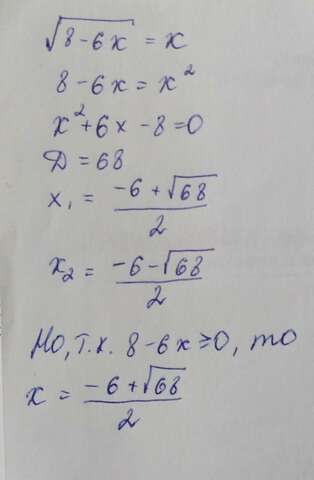 √8-6x = x
8-6x = x²
x²+6x-8=0
D = 68
x₁ = (-6+√68)/2
x₂ = (-6-√68)/2
Но, т.к. 8-6x≥0, то
x = (-6+√68)/2